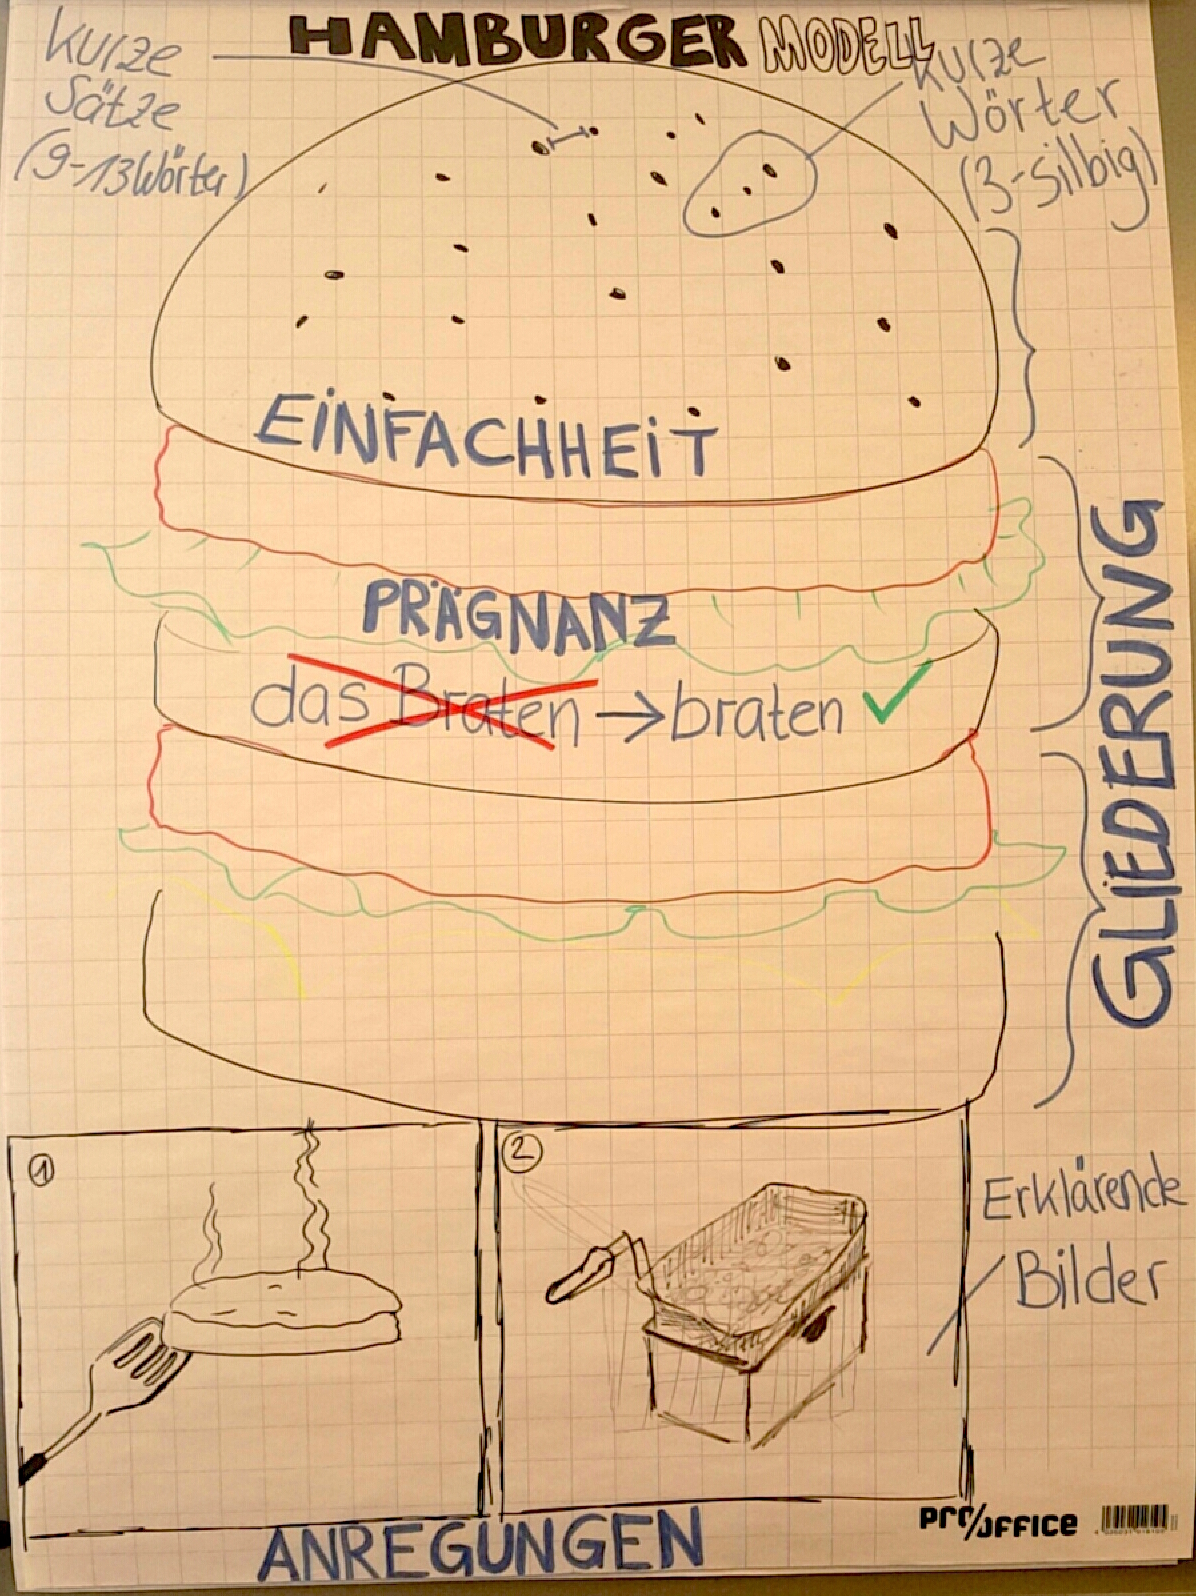 HAMBURGER MODELL
Kurze
Sätze
(9-13 Wörter)
kurze
Wörter
(3-silbig)
EINFACHHEIT
PRÄGNANZ
das Braten → braten ✓
GLIEDERUNG
1
2
Erklärende
Bilder
ANREGUNGEN
PRO/OFFICE